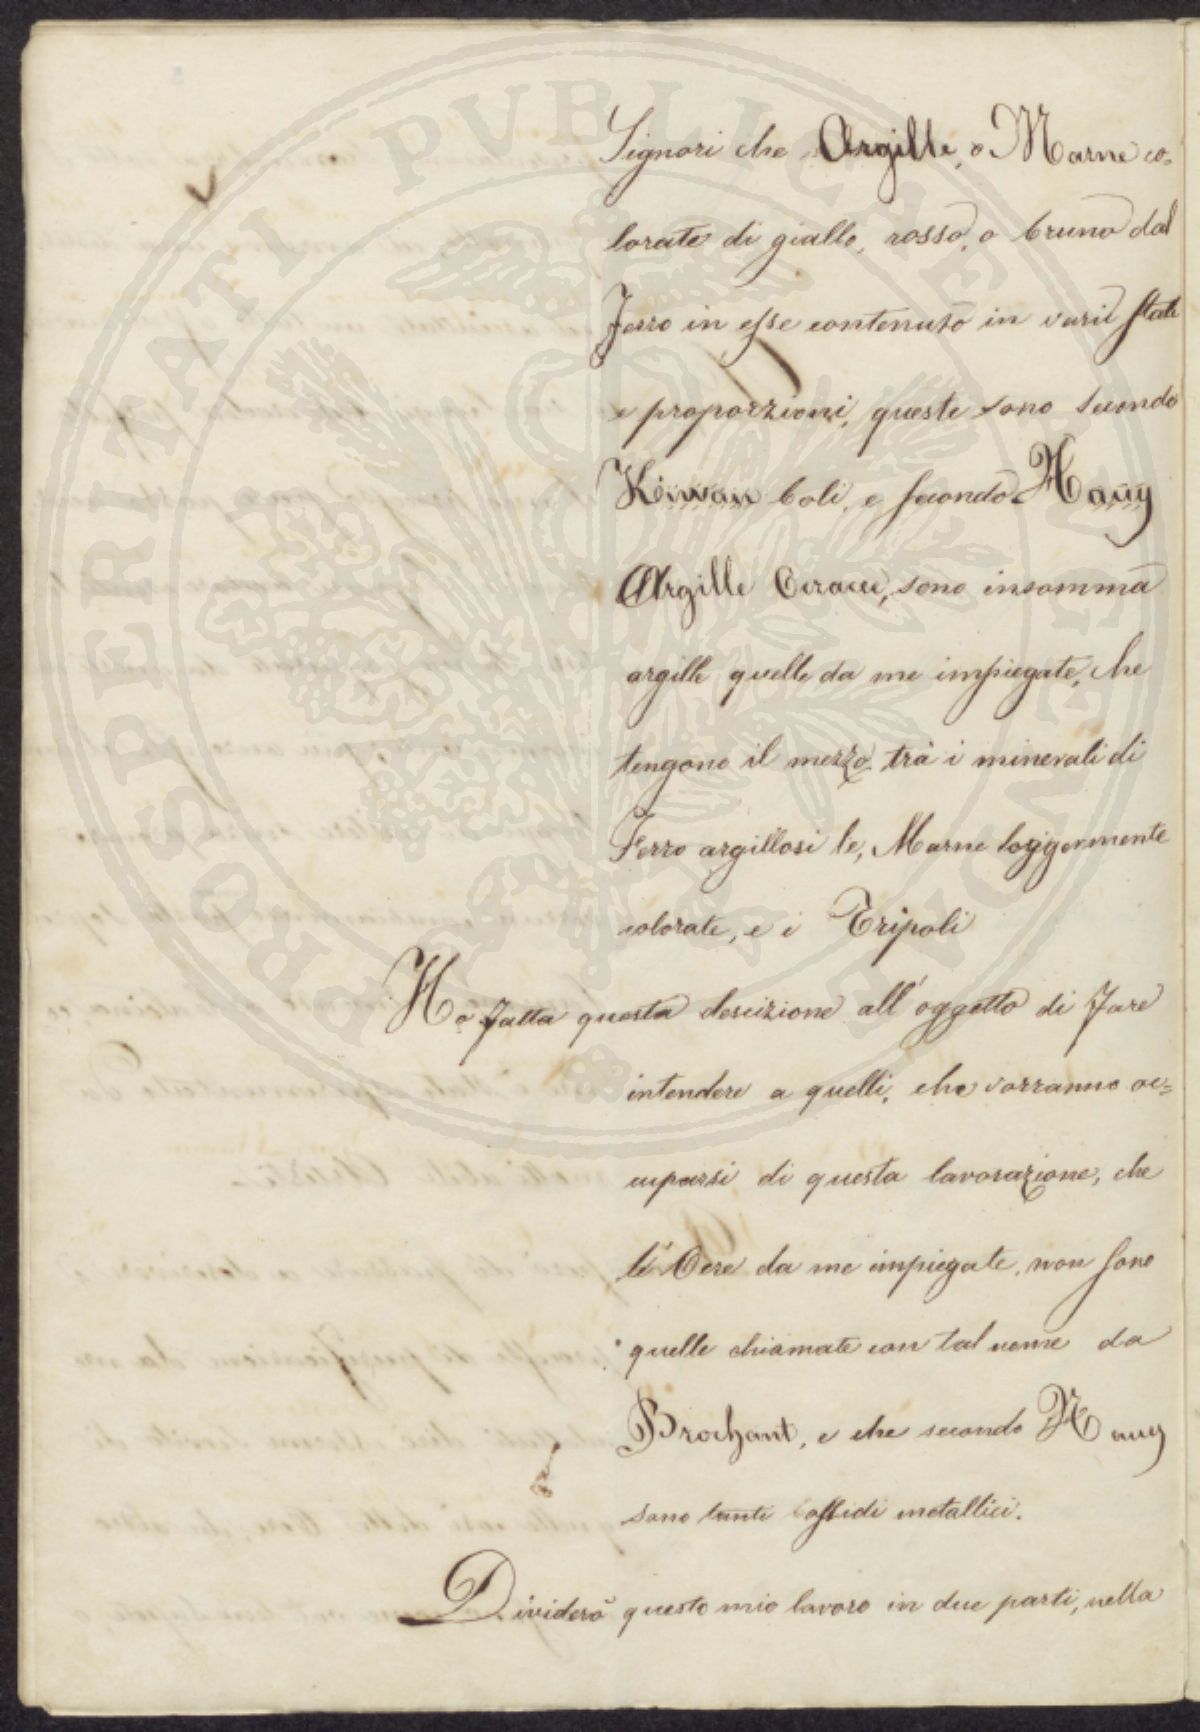 Signori che Argille, o Marne co=
lorate di giallo, rosso, o bruno dal
Ferro in esse contenuto in varii stati
e proporzioni, queste sono secondo
Kirwan boli, e secondo Hauy
Argille Ocracee, sono insomma
argille quelle da me impiegate, che
tengono il mezzo trà i minerali di
Ferro argillosi le, Marne leggermente
colorate, e i Tripoli
Ho fatta questa descizione all'oggetto di Fare
intendere a quelli, che vorranno oc=
cuparsi di questa lavorazione, che
le Ocre da me impiegate, non sono
quelle chiamate con tal nome da
Brochant, e che secondo Hauy
sono tanti ossidi metallici.
Dividerò questo mio lavoro in due parti, nella
PROSPERITATI PVBLICAE